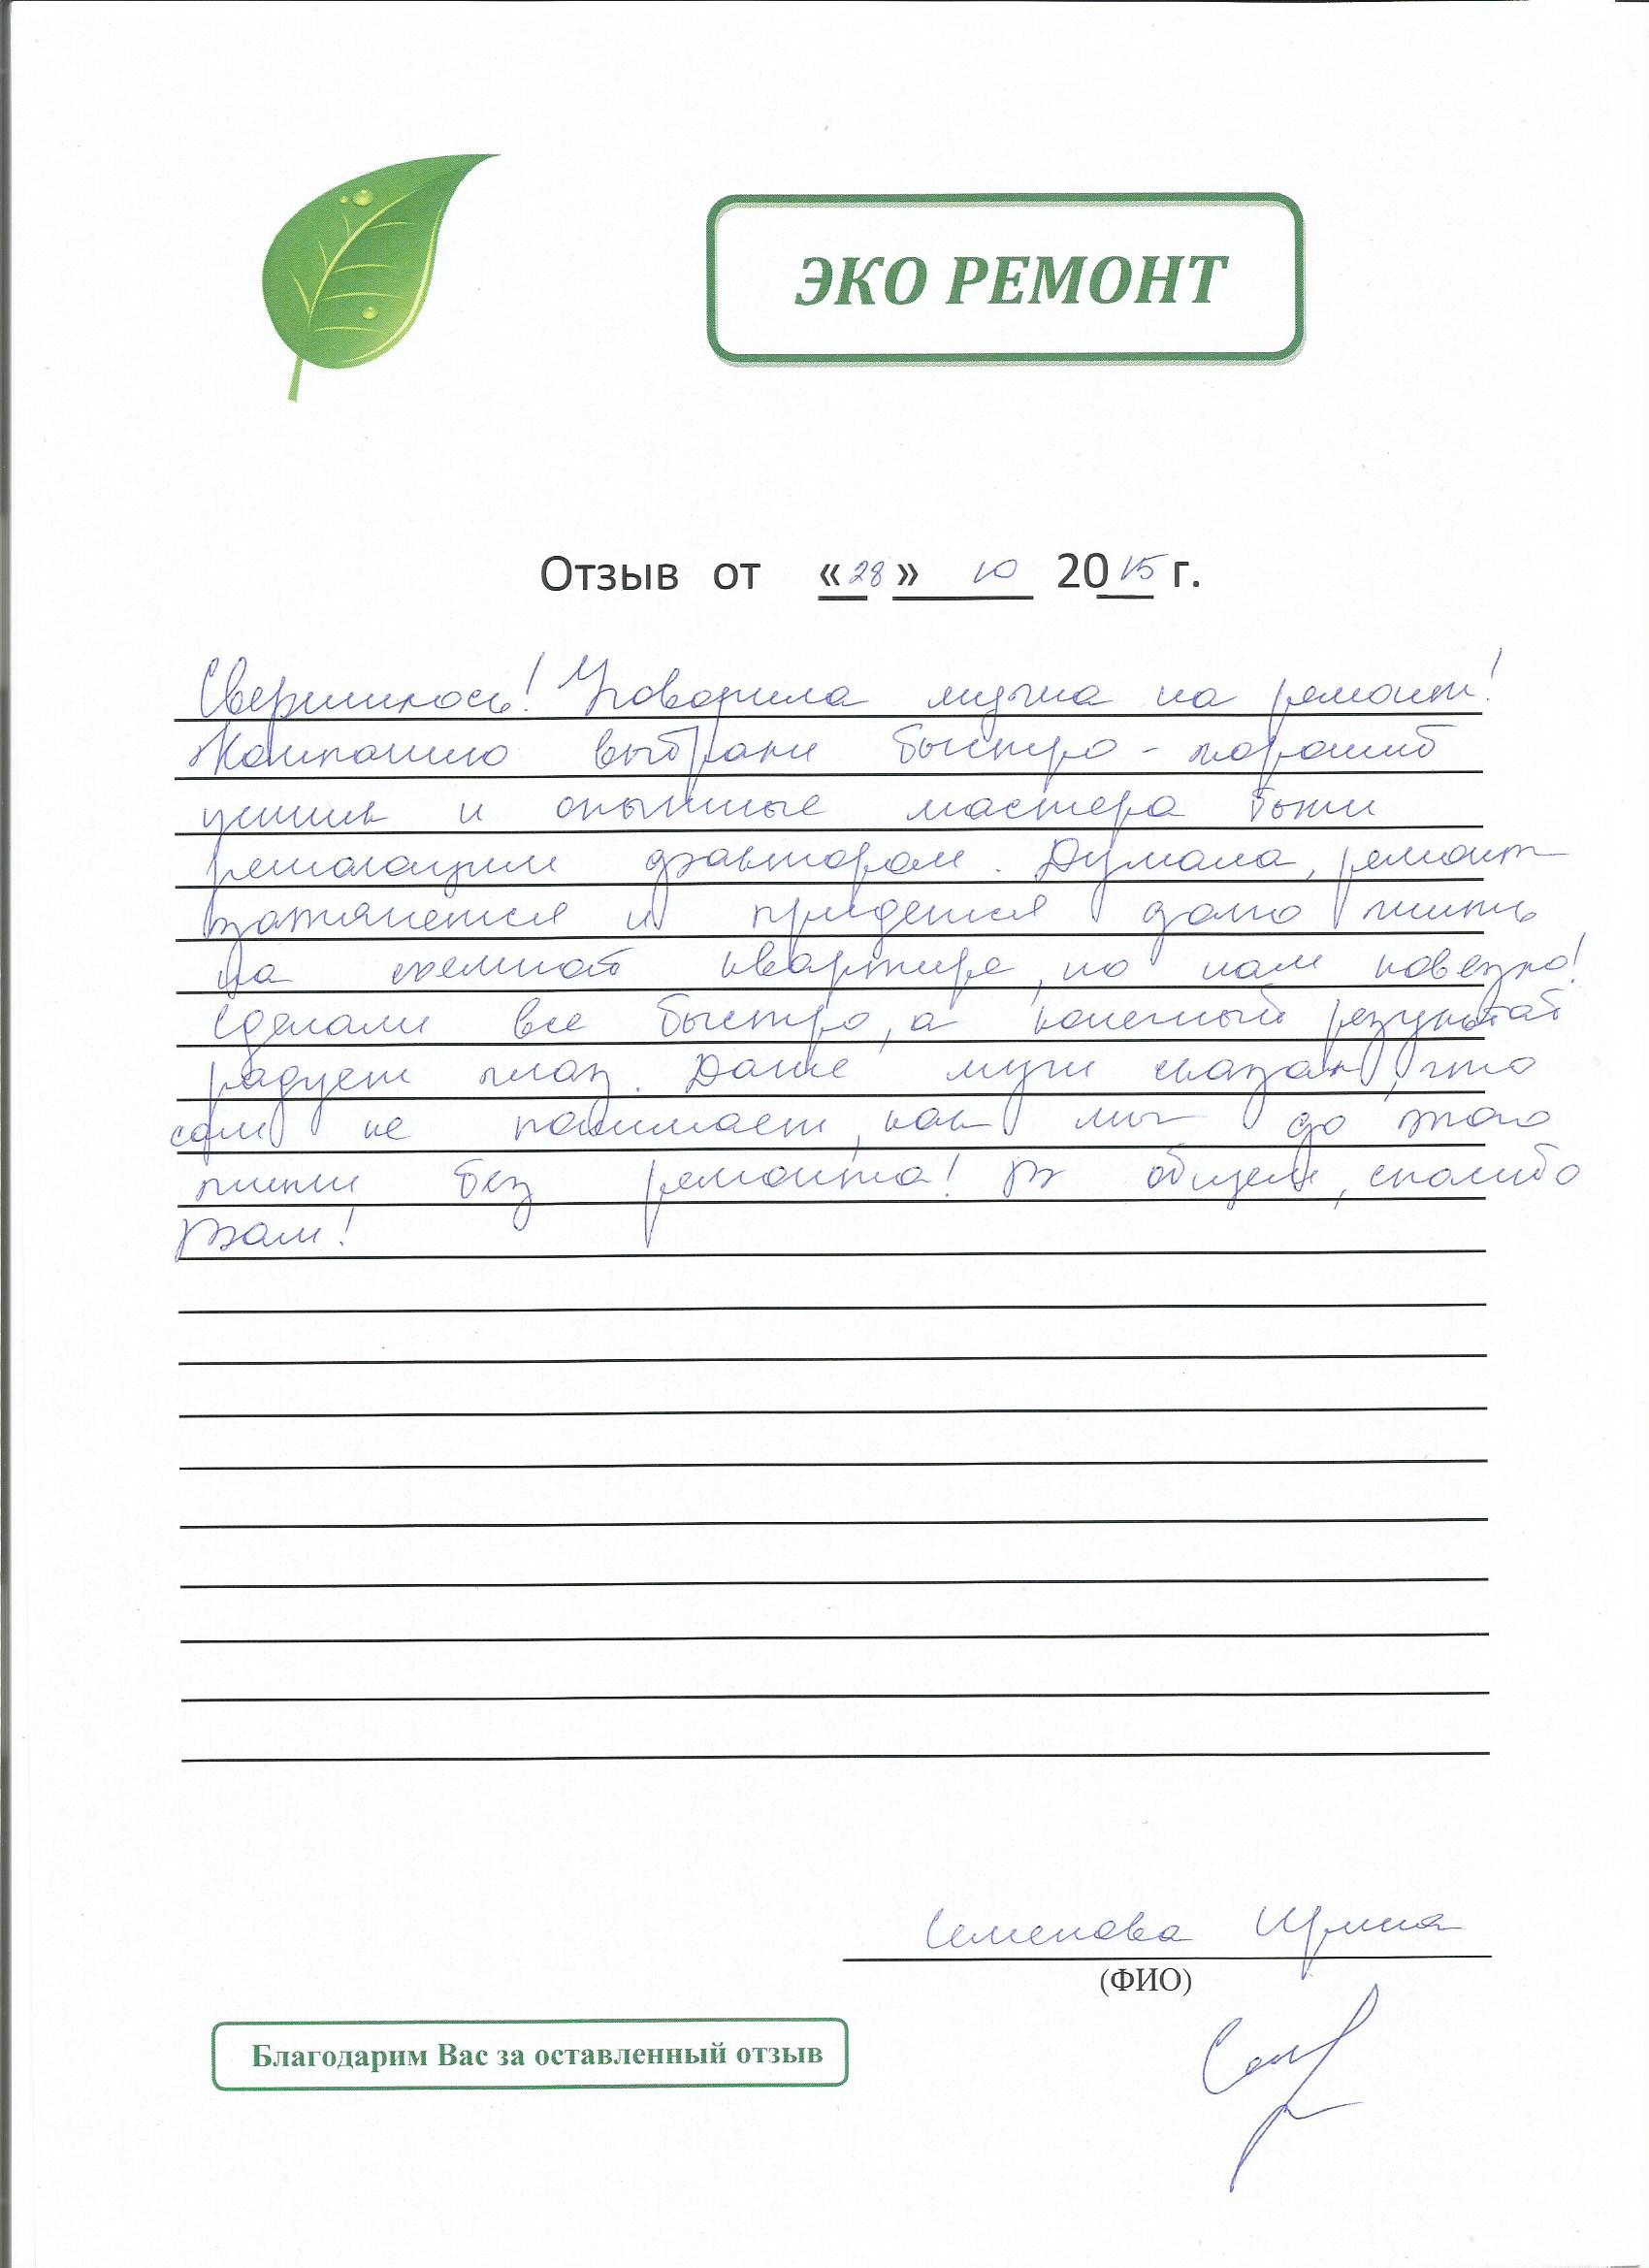 ЭКО РЕМОНТ
Отзыв от «28» 10 2015 г.
Свершилось! Уговорила мужа на ремонт!
Компанию выбрали быстро - хороший
ценник и опытные мастера были
решающим фактором. Думала, ремонт
затянется и придется долго жить
на съемной квартире, но нам повезло!
Сделали все быстро, а конечный результат
радует глаз. Даже муж сказал, что
сам не понимает, как мы до этого
жили без ремонта! В общем, спасибо
Вам!
Семенова Ирина
(ФИО)
Благодарим Вас за оставленный отзыв